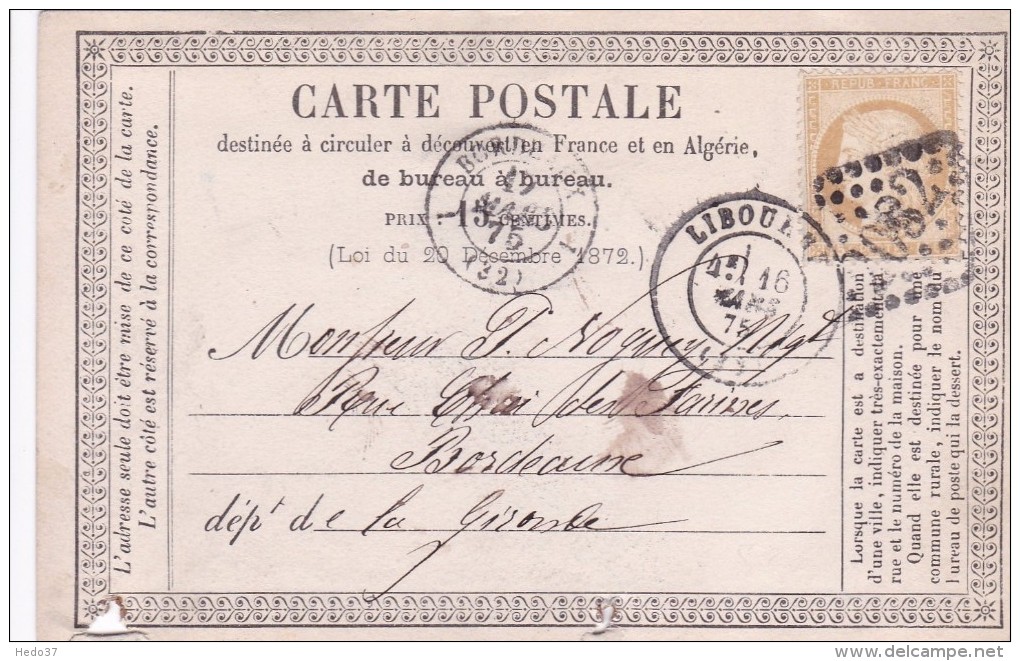 REPUB. FRANC.
CARTE POSTALE
destinée à circuler à découvert en France et en Algérie,
de bureau à bureau.
PRIX : 15 CENTIMES.
(Loi du 20 Décembre 1872.)
BORDEAUX
17
MARS
75
(32)
LIBOURNE
16
MARS
75
Monsieur P. Noguey Negt
Rue Chai des Farines
Bordeaux
dépt de la Gironde
L'adresse seule doit être mise de ce coté de la carte.
L'autre côté est réservé à la correspondance.
Lorsque la carte est a destination
d'une ville, indiquer très-exactement la
rue et le numéro de la maison.
Quand elle est destinée pour une
commune rurale, indiquer le nom du
bureau de poste qui la dessert.
Hedo37
delcampe.net